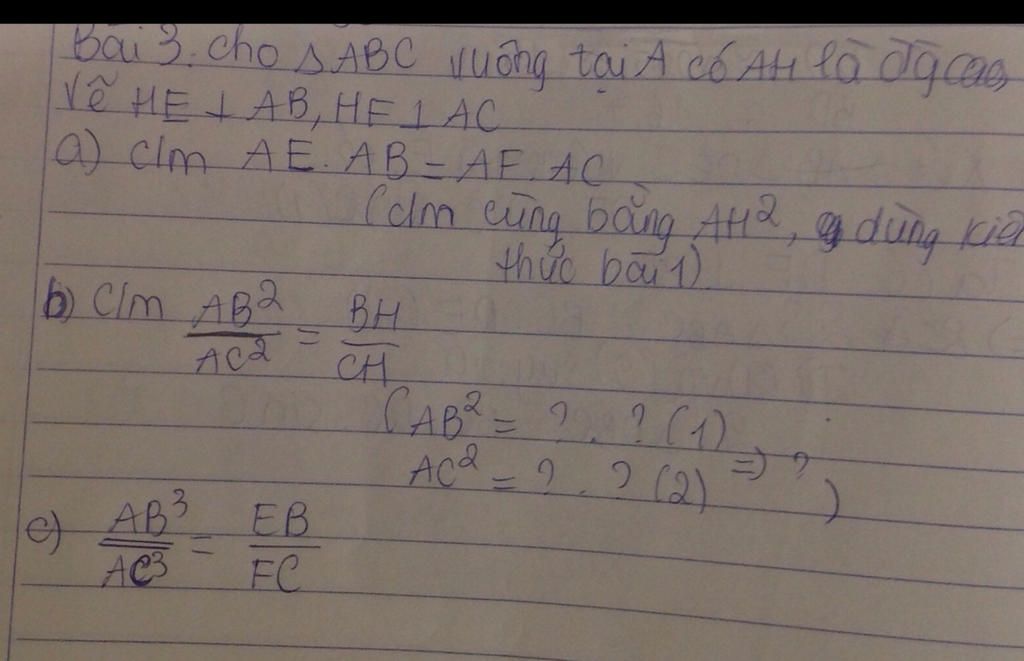 Bài 3. cho △ABC vuông tại A có AH là đg cao,
Vẽ HE ⊥ AB, HF ⊥ AC
a) c/m AE. AB = AF. AC
(c/m cùng bằng AH², dùng kiê
thức bài 1)
b) C/m AB²/AC² = BH/CH
(AB² = ?. ? (1)
AC² = ?. ? (2) => ? )
c) AB³/AC³ = EB/FC